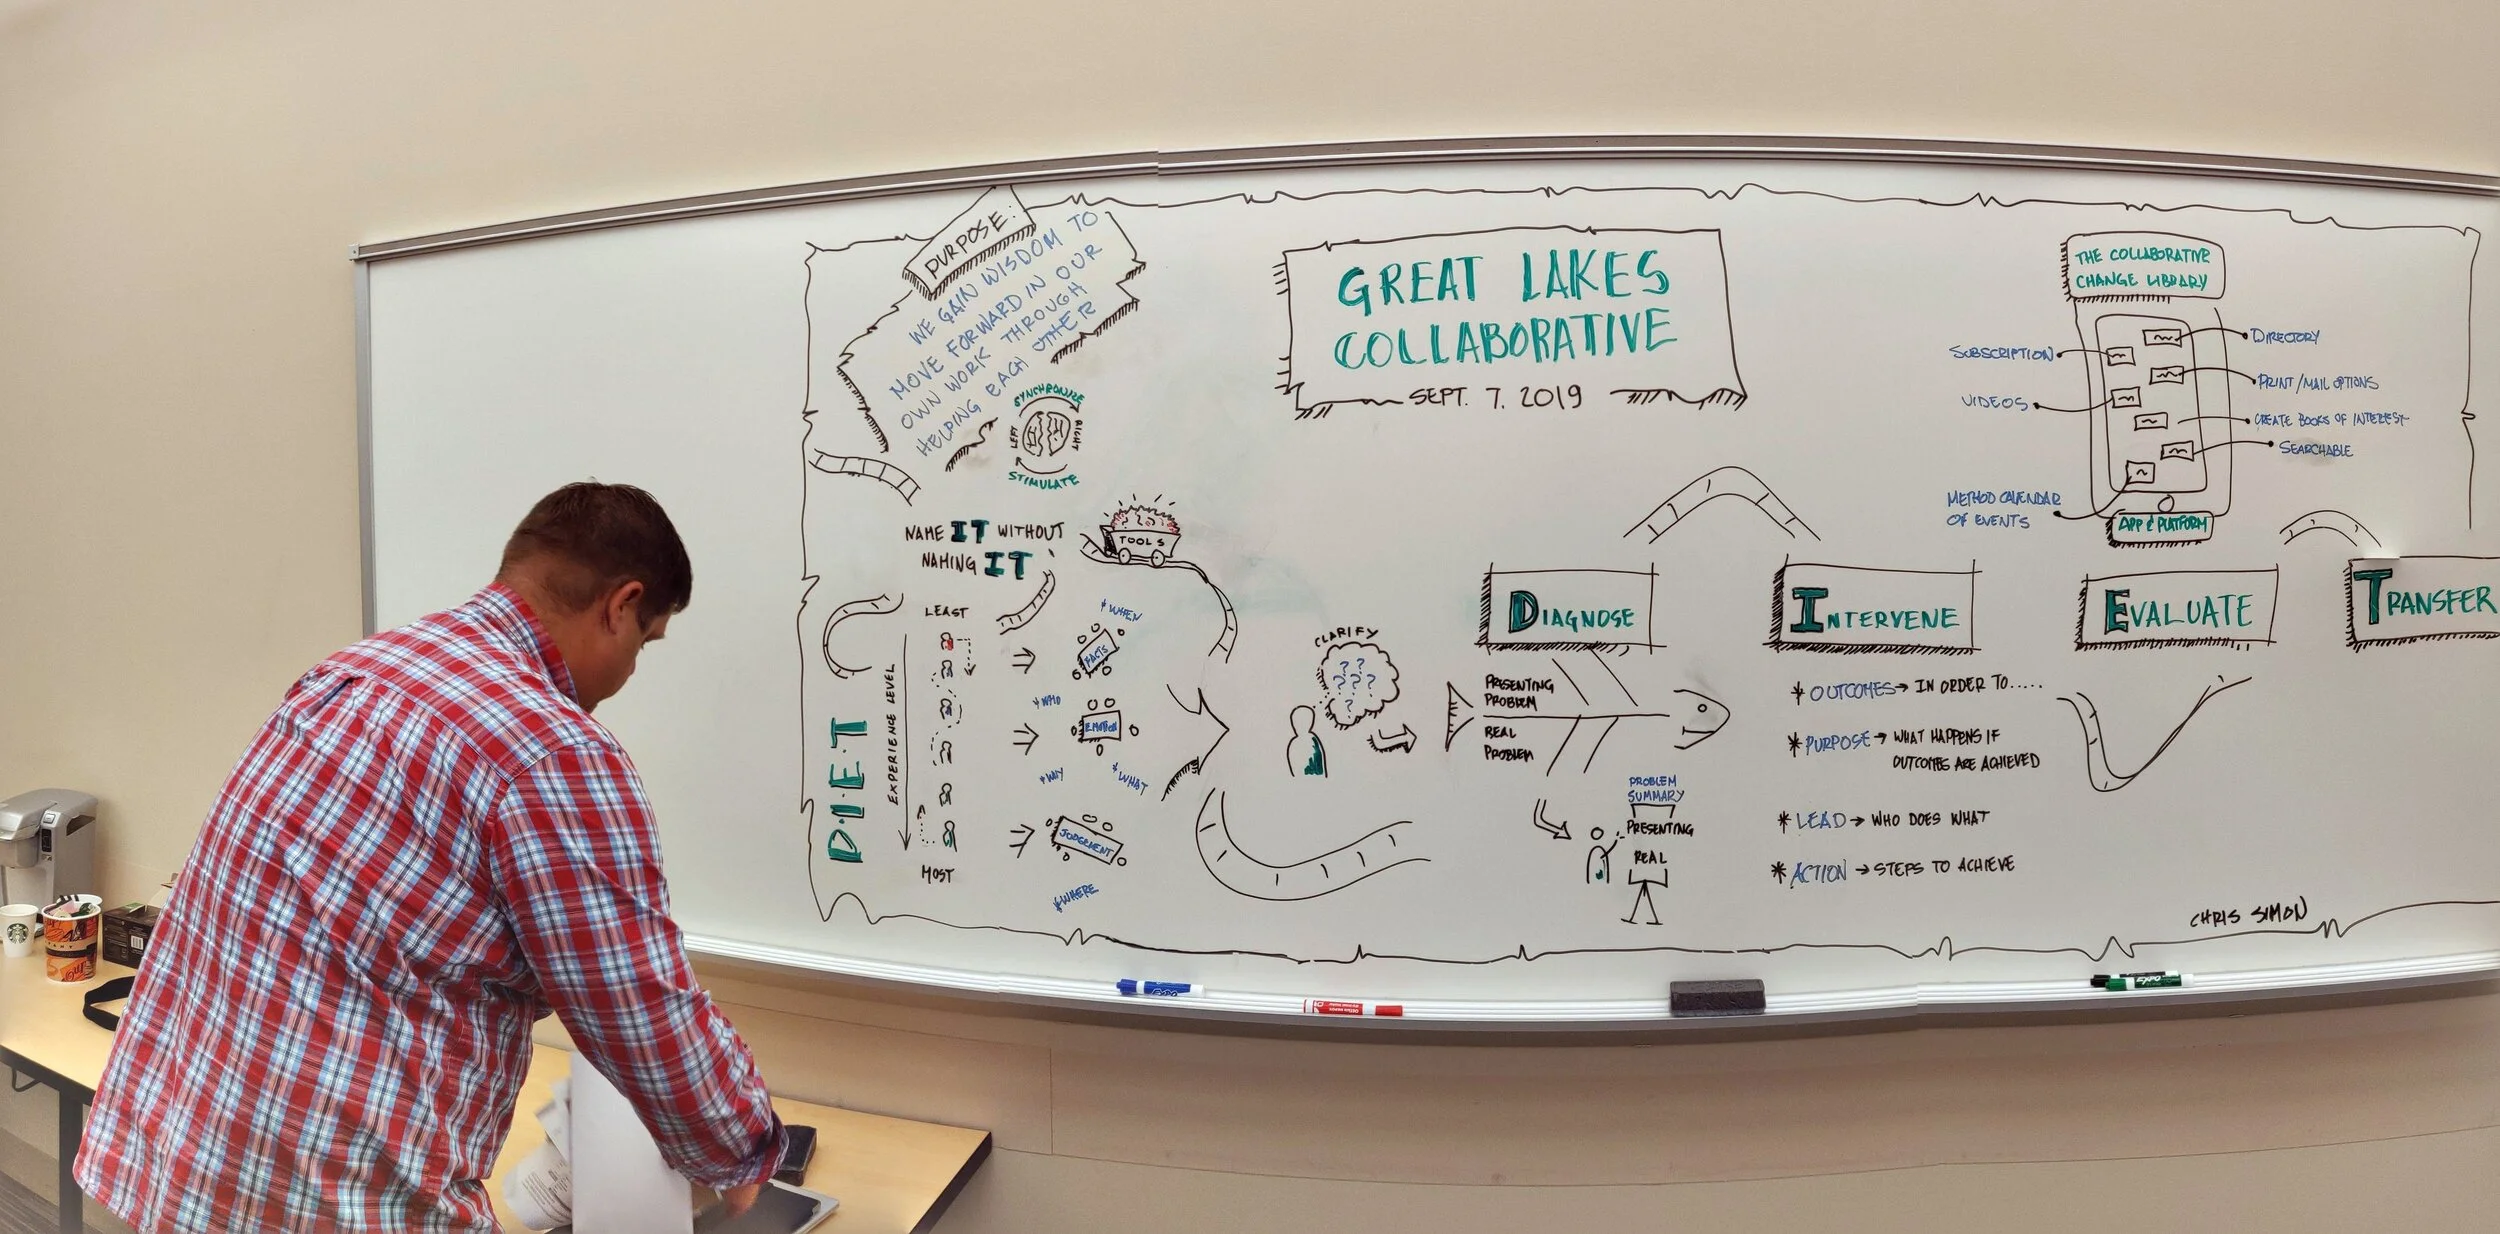 PURPOSE:
WE GAIN WISDOM TO
MOVE FORWARD IN OUR
OWN WORK THROUGH
HELPING EACH OTHER
SYNCHRONIZE
LEFT
RIGHT
STIMULATE
GREAT LAKES
COLLABORATIVE
SEPT. 7. 2019
THE COLLABORATIVE
CHANGE LIBRARY
SUBSCRIPTION
VIDEOS
METHOD CALENDAR
OF EVENTS
DIRECTORY
PRINT/MAIL OPTIONS
CREATE BOOKS OF INTEREST
SEARCHABLE
APP & PLATFORM
NAME IT WITHOUT
NAMING IT
TOOLS
DIET
EXPERIENCE LEVEL
LEAST
MOST
* WHEN
FACTS
* WHO
EMOTION
* WHY
* WHAT
JUDGEMENT
* WHERE
CLARIFY
? ?
? ? ?
?
DIAGNOSE
PRESENTING
PROBLEM
REAL
PROBLEM
PROBLEM
SUMMARY
PRESENTING
REAL
INTERVENE
* OUTCOMES → IN ORDER TO.....
* PURPOSE → WHAT HAPPENS IF
OUTCOMES ARE ACHIEVED
* LEAD → WHO DOES WHAT
* ACTION → STEPS TO ACHIEVE
EVALUATE
TRANSFER
CHRIS SIMON
EXPO
EXPO